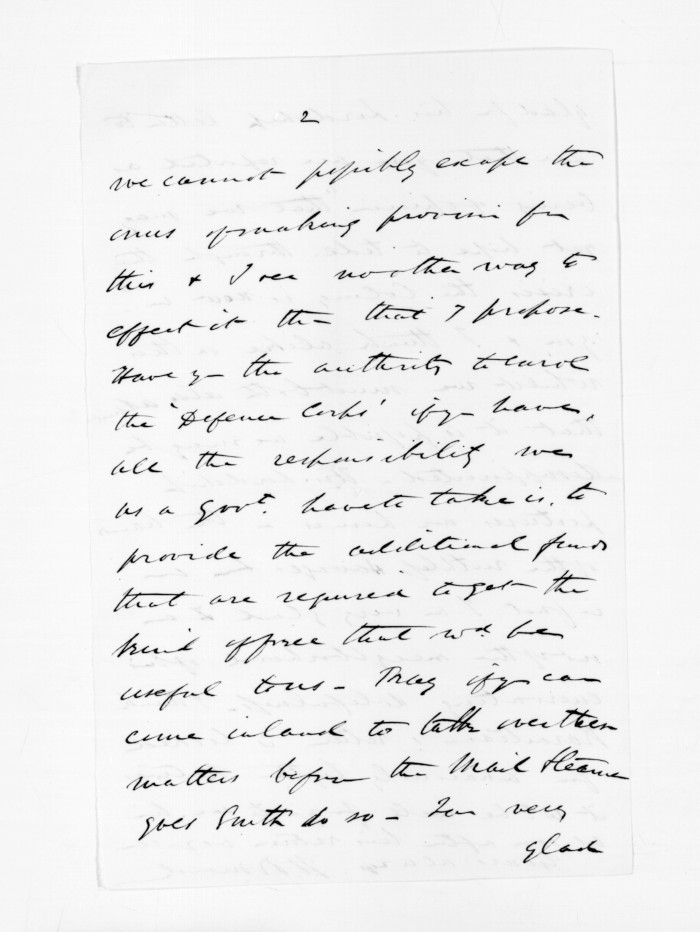 2
we cannot possibly escape the
onus of making provision for
this & I see no other way to
effect it than that I propose.
Have you the authority to enrol
the 'Defence Corps' if you have,
all the responsibility we
as a Govt. have to take is, to
provide the additional funds
that are required to get the
kind of force that wd. be
useful to us - Pray if you can
come inland to talk over these
matters before the Mail Steamer
goes South do so - I am very
glad